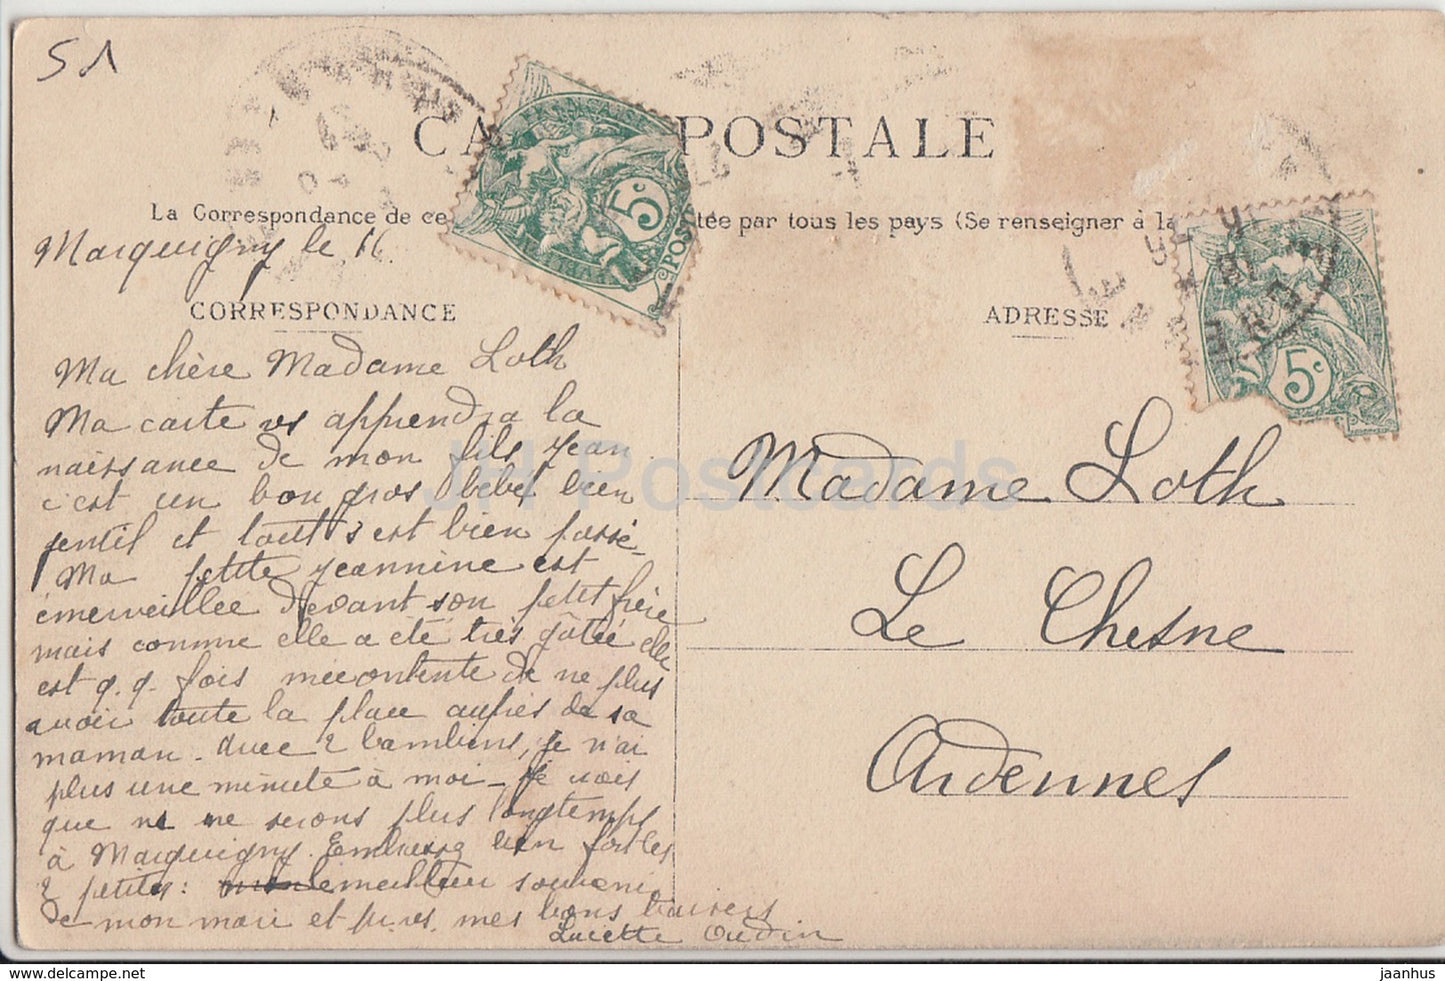 51
CA POSTALE
La Correspondance de ce tée par tous les pays (Se renseigner à la
FRANÇAISE
5c
POSTES
5c
Marquigny le 16.
CORRESPONDANCE
ADRESSE
Ma chère Madame Loth
Ma carte vs apprendra la
naissance de mon fils Jean
c'est un bon gros bébé bien
gentil et tout s'est bien passé.
Ma petite Jeannine est
émerveillée devant son petit frère
mais comme elle a été très gâtée elle
est q.q. fois mécontente de ne plus
avoir toute la place auprès de sa
maman. Avec 2 bambins, je n'ai
plus une minute à moi. Je vois
que ns ne serons plus longtemps
à Marquigny. Embrassez bien fort les
2 petits: le meilleur souvenir
de mon mari et pr vs. mes bons baisers
Lucette Oudin
Madame Loth
Le Chesne
Ardennes
JH Postcards
delcampe.net
jaanhus